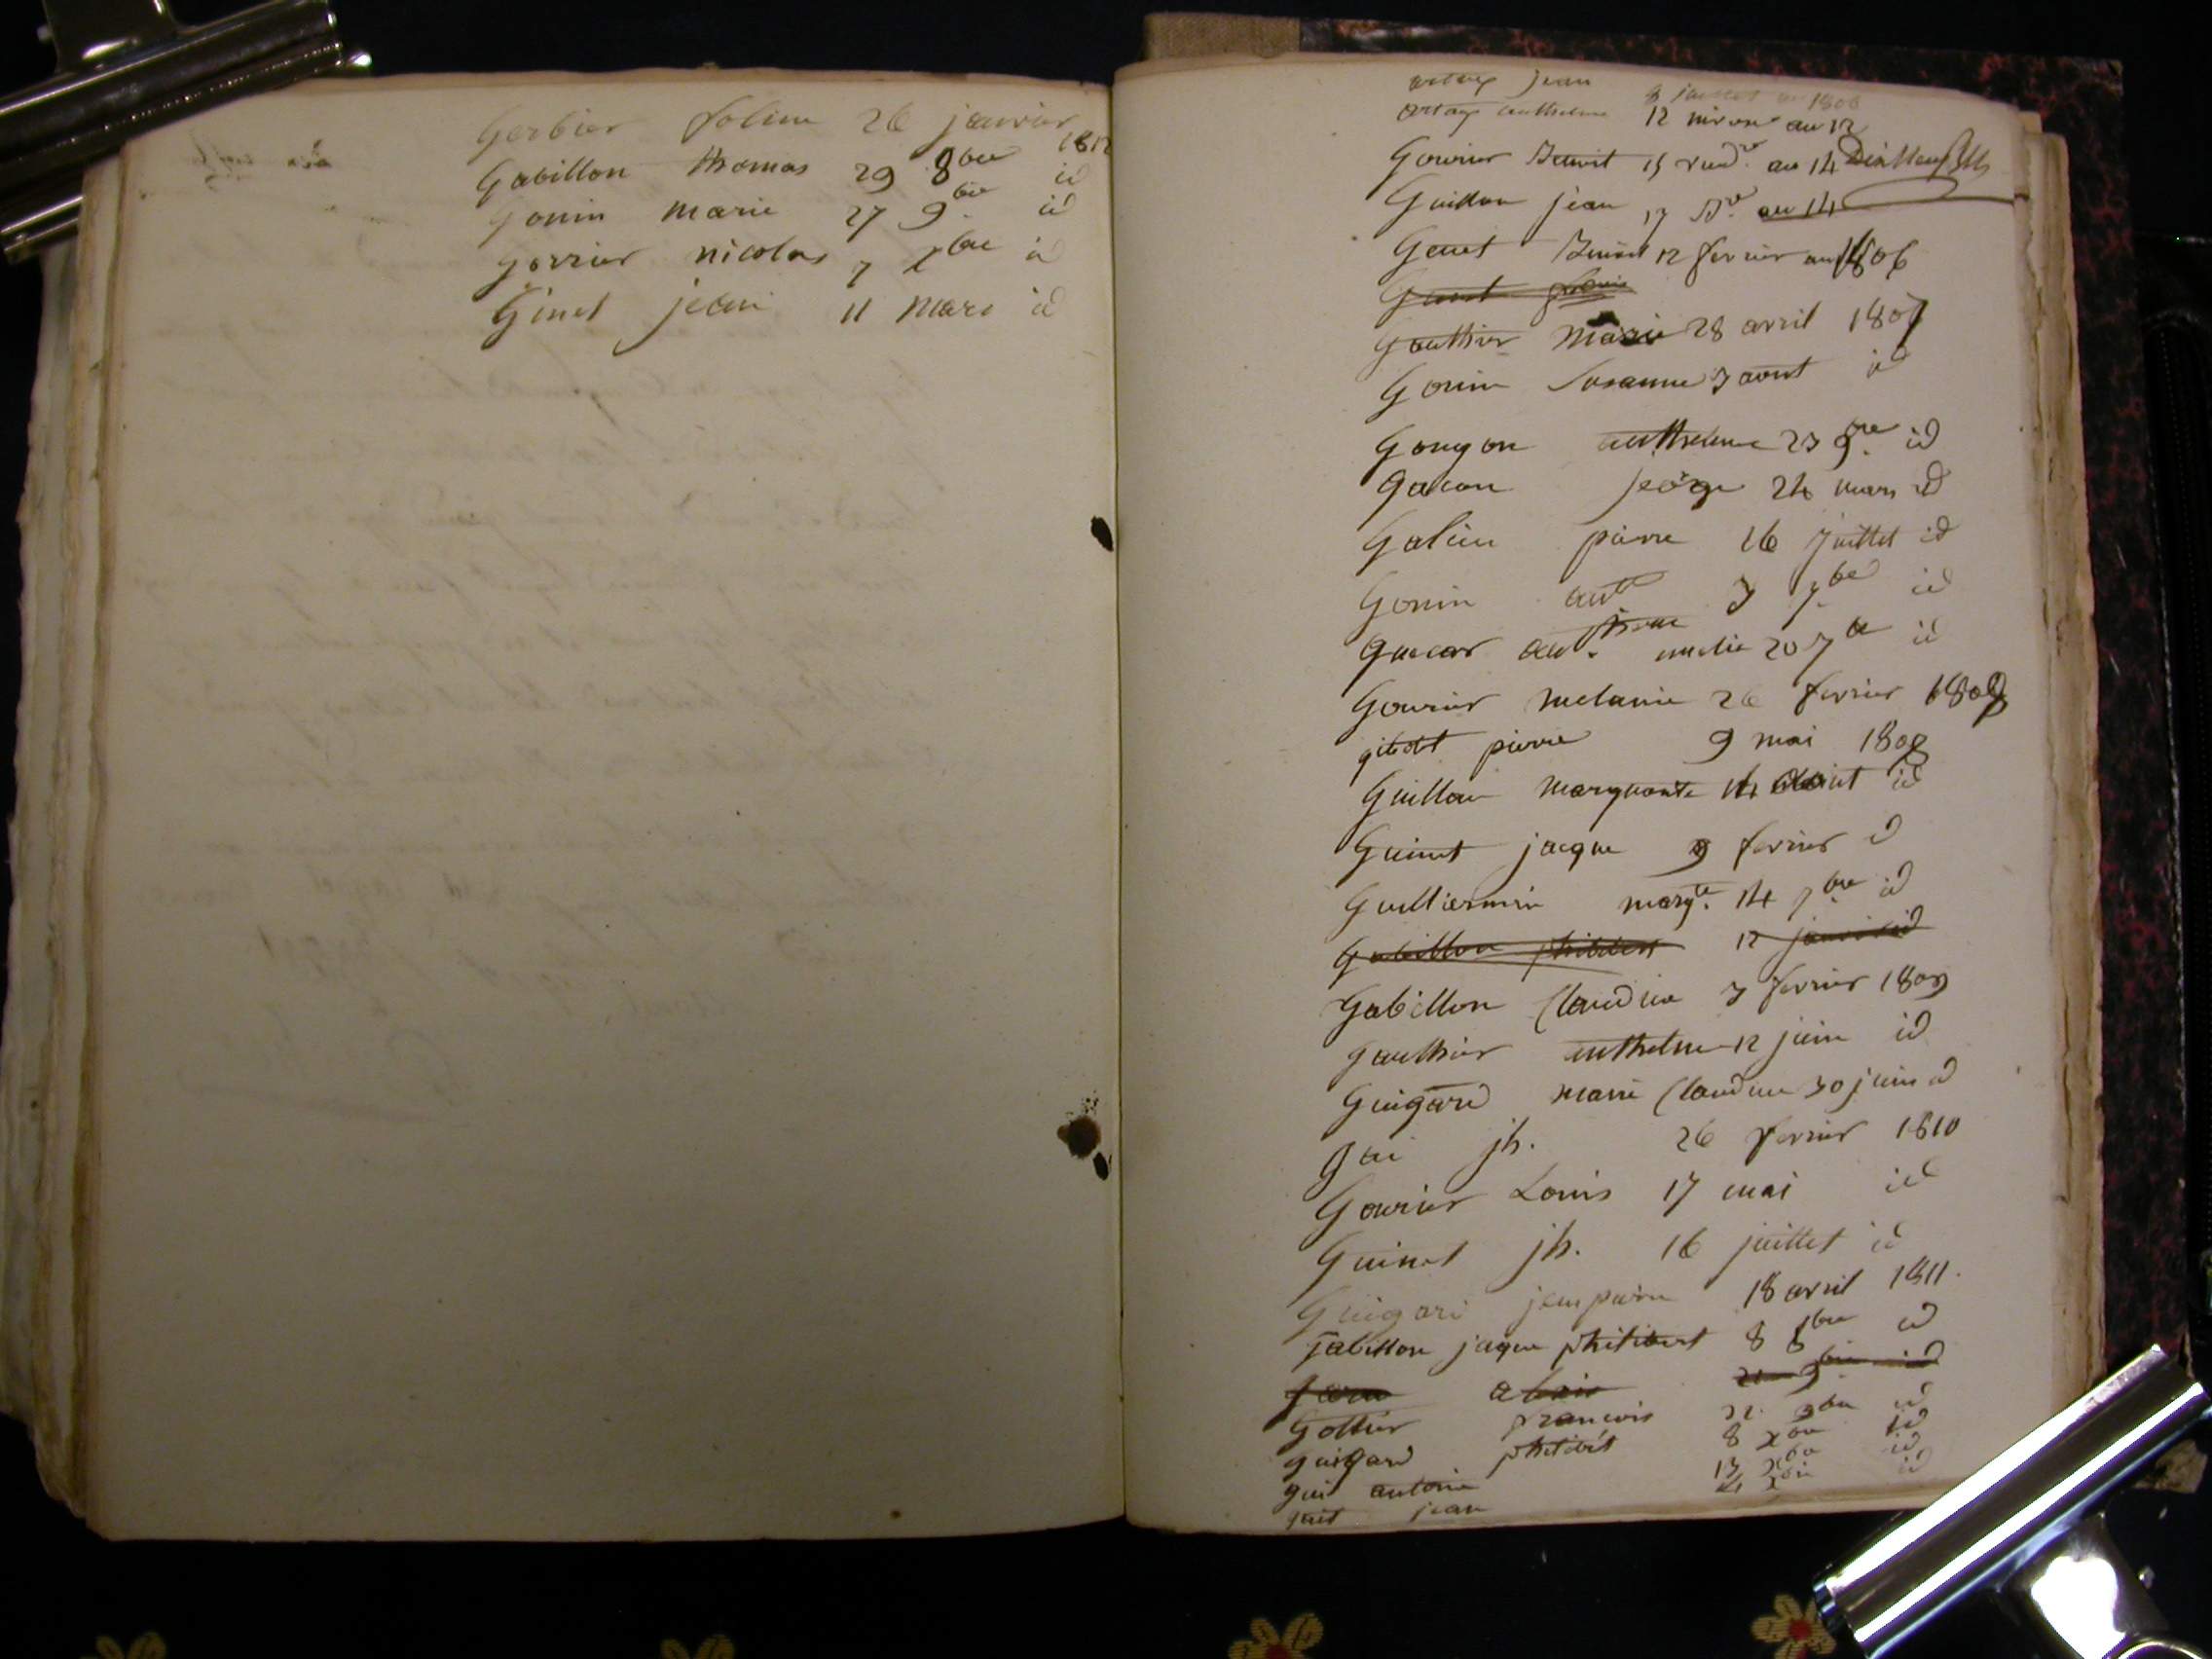 Gerbier foline 26 janvier 1812
Gabillon thomas 29 8bre id
Gonin marie 27 9bre id
Gorrier nicolas 7 bre id
Ginet jean 11 mars id
jean 8 1806
anthelme 12 nivose an 12
Gourier Benoit 15 vend.re an 14
Guillon jean 17 an 14
Genet Benoit 12 fevrier 1806
Gauthier Marie 28 avril 1807
Gonin Susanne 3 aout id
Gougon anthelme 23 9bre id
Gacon jeorge 24 mars id
Galien pierre 16 juillet id
Gonin 3 7bre id
20 7bre id
Gourier melanie 26 fevrier 1808
pierre 9 mai 1808
Guillon marguerite 14 aout id
Guinet jacque 9 fevrier id
Guilliermin margte. 14 7bre id
Gabillon philibert 12 janvier id
Gabillon Claudine 3 fevrier 1809
Gauthier anthelme 12 juin id
Guigard marie Claudine 30 juin id
Gai jh. 26 fevrier 1810
Gourier Louis 17 mai id
Guinet jh. 16 juillet id
Guigard jean pierre 18 avril 1811.
Gabillon jaque philibert 8 8bre id
alexis 9bre id
Gottier francois 9bre id
guigard philibert 8 xbre id
gui antoine 13 xbre id
jean xbre id